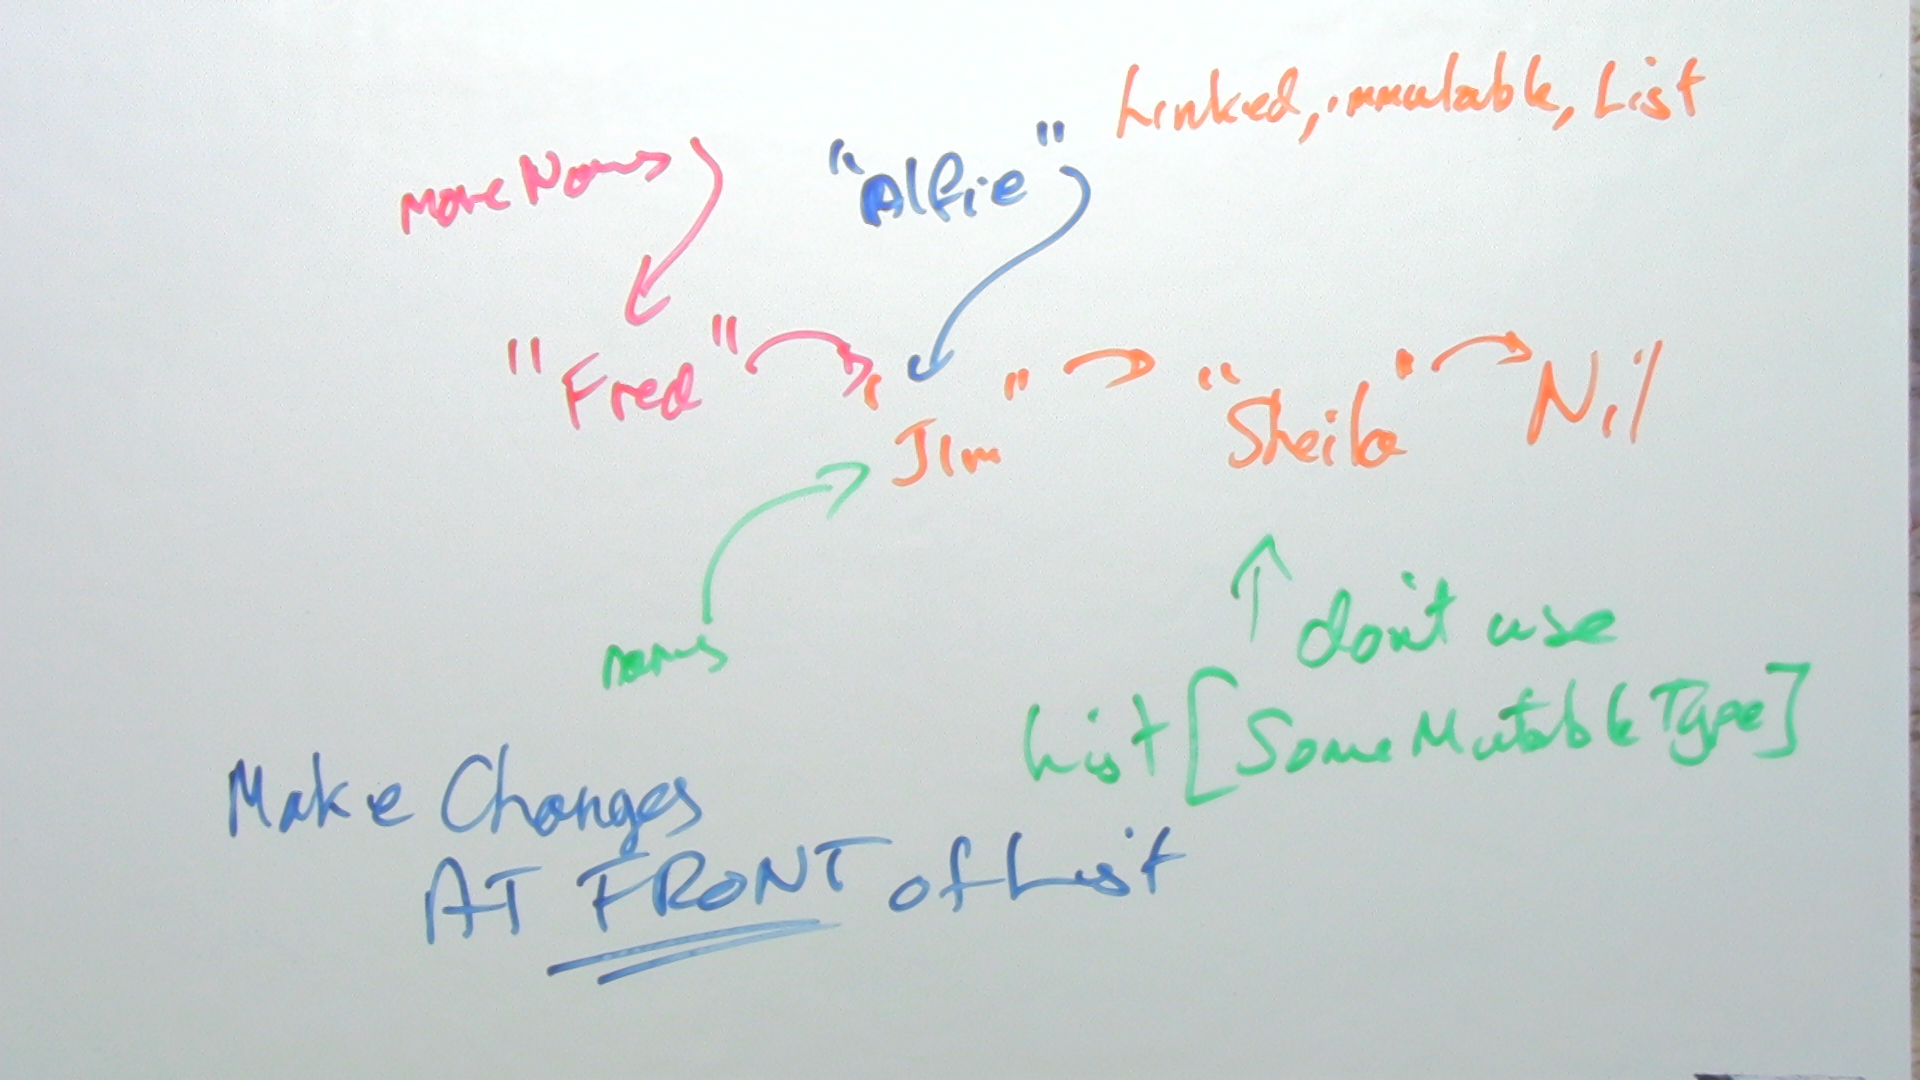 Linked, immutable, List
moreNames
"Alfie"
"Fred"
"Jim"
"Sheila"
Nil
names
don't use
List[SomeMutableType]
Make Changes
AT FRONT of List